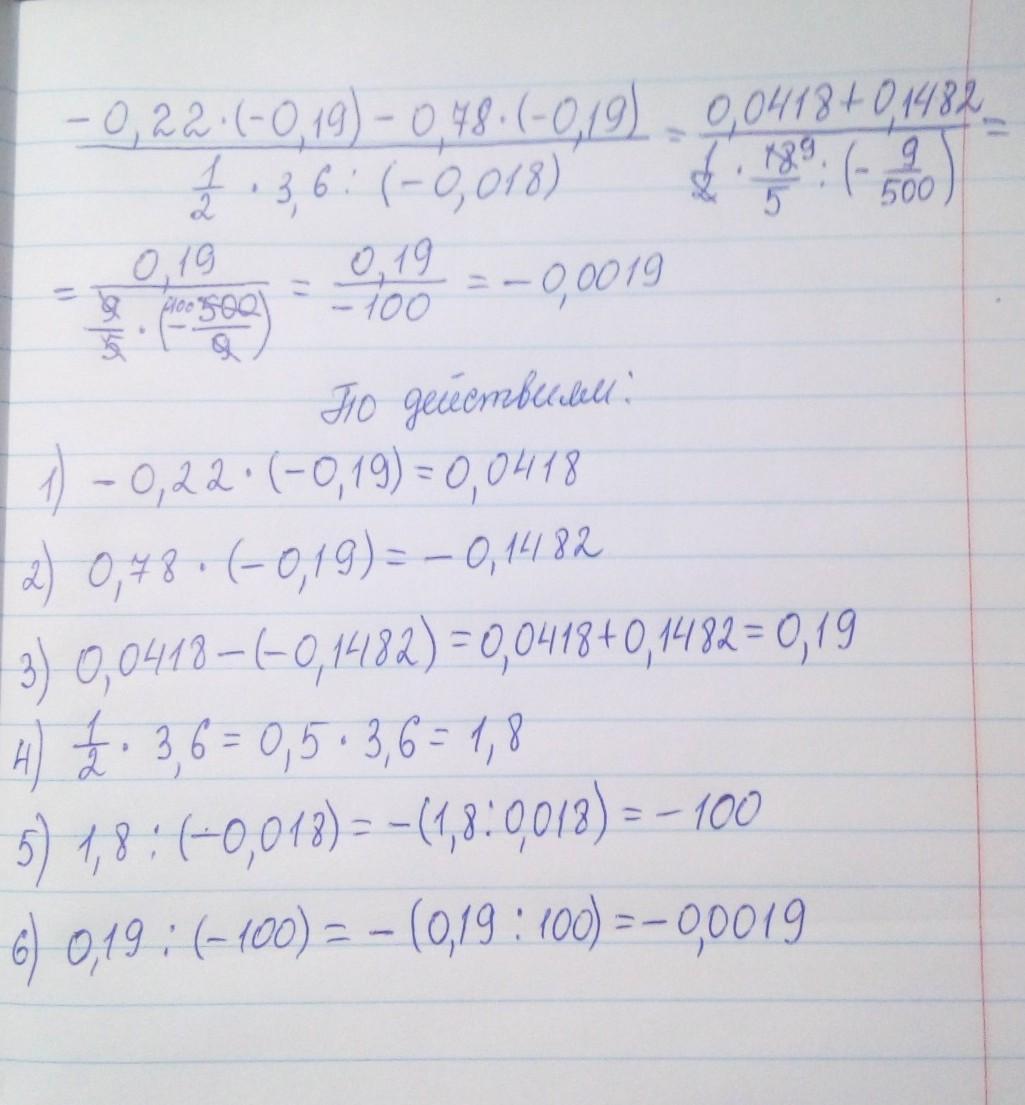 (-0,22·(-0,19) - 0,78·(-0,19)) / (1/2 · 3,6 : (-0,018)) = (0,0418+0,1482) / (1/2 · 18 9/5 : (-9/500)) =
= 0,19 / (9/5 · (-100 500/9)) = 0,19/-100 = -0,0019
По действиям:
1) -0,22·(-0,19) = 0,0418
2) 0,78·(-0,19) = -0,1482
3) 0,0418-(-0,1482) = 0,0418+0,1482 = 0,19
4) 1/2 · 3,6 = 0,5·3,6 = 1,8
5) 1,8 : (-0,018) = -(1,8:0,018) = -100
6) 0,19 : (-100) = -(0,19 : 100) = -0,0019